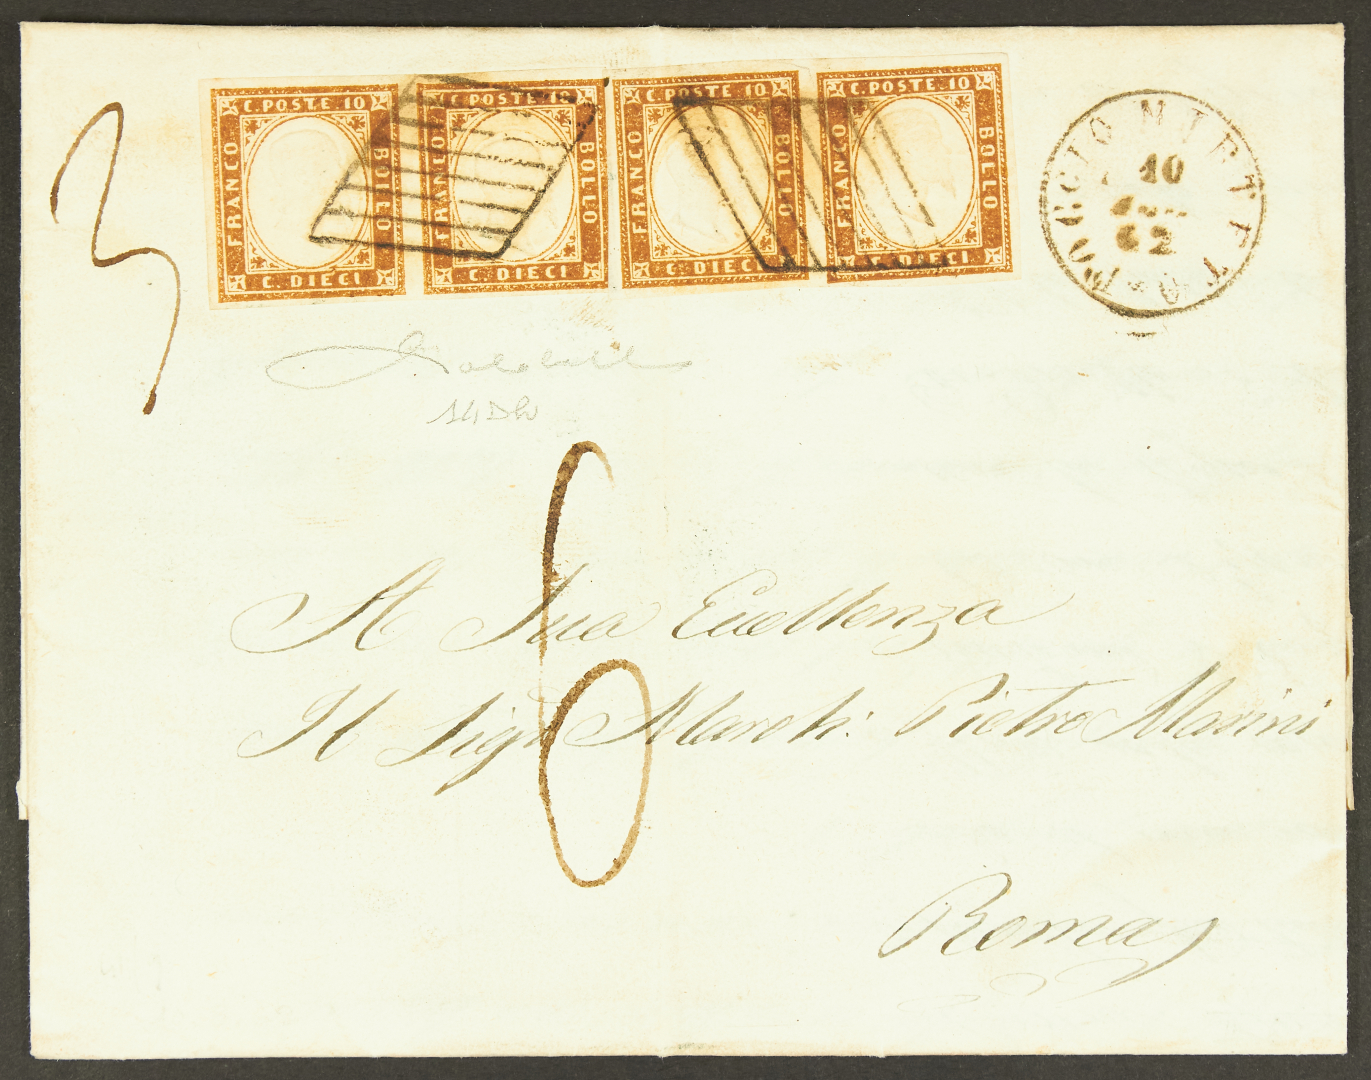 C. POSTE 10
FRANCO
BOLLO
C. DIECI
C. POSTE 10
FRANCO
BOLLO
C. DIECI
C. POSTE 10
FRANCO
BOLLO
C. DIECI
C. POSTE 10
FRANCO
BOLLO
C. DIECI
POGGIO MIRTETO
10
62
3
14Db
6
A Sua Eccellenza
Il Sigr March: Pietro Marini
Roma